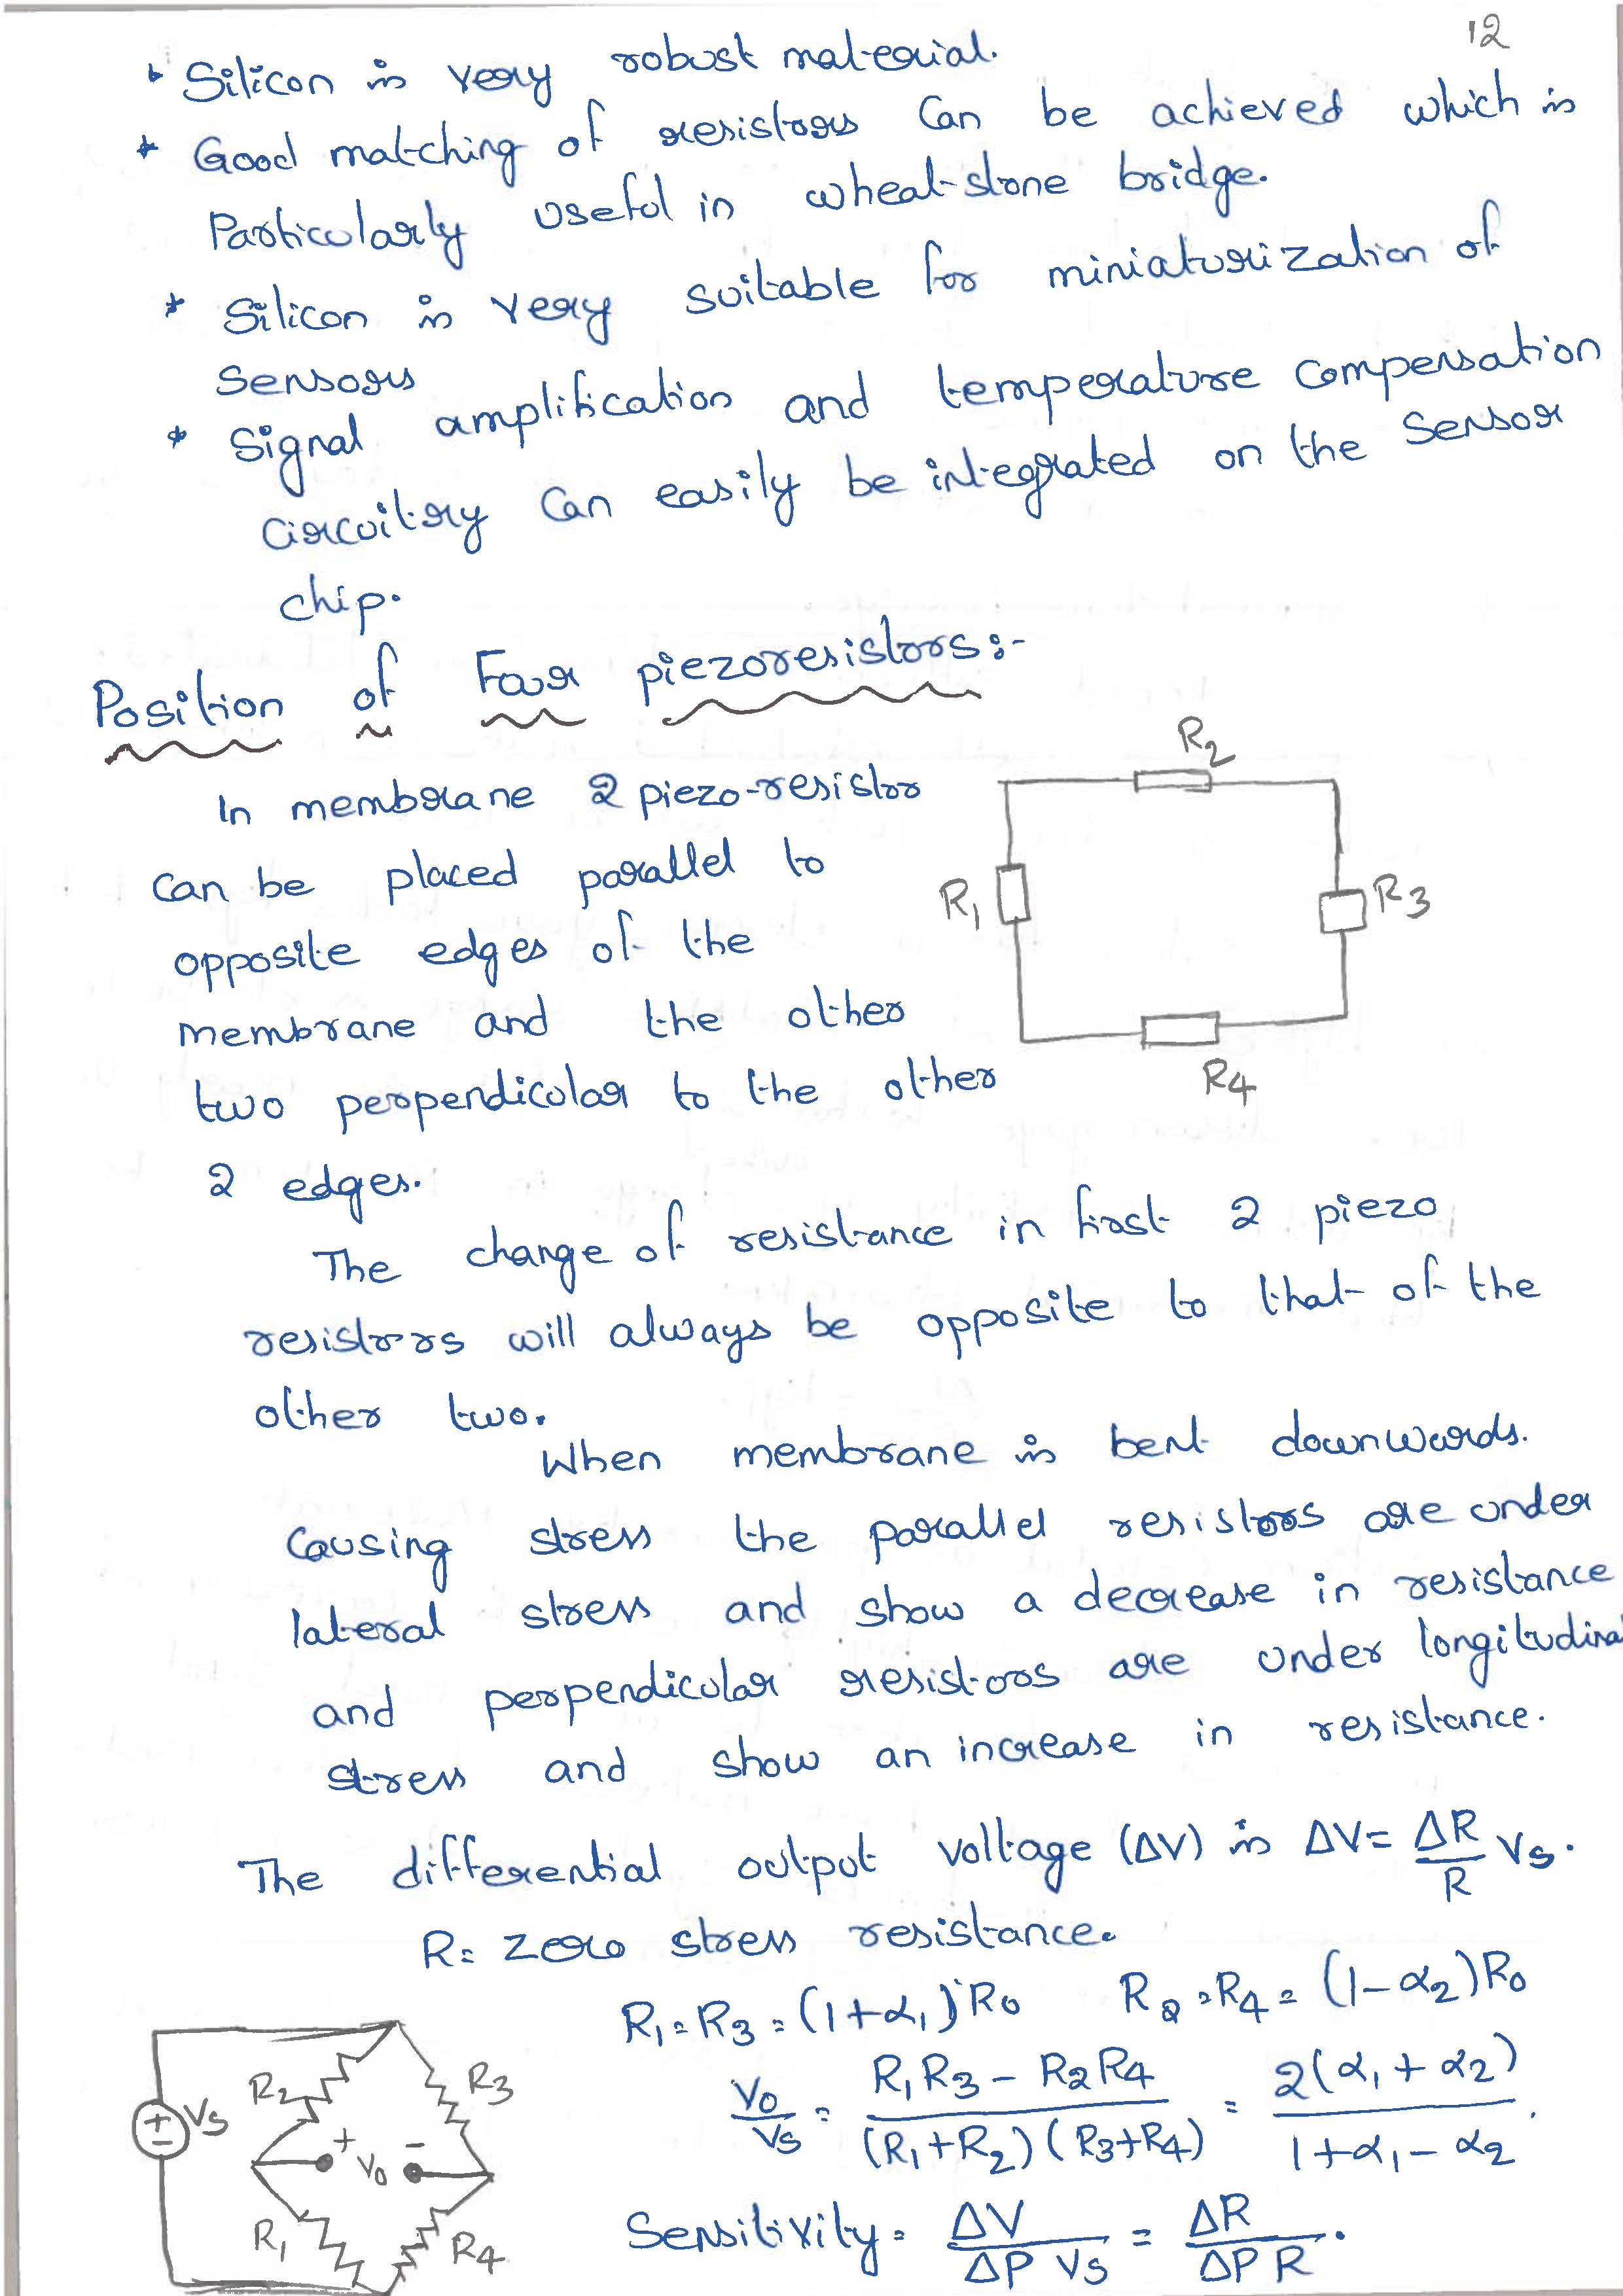 12
* Silicon is very robust material.
* Good matching of resistors Can be achieved which is
Particularly useful in wheat-stone bridge.
* Silicon is very suitable for miniaturization of
Sensors
* Signal amplification and temperature compensation
Circuitry Can easily be integrated on the Sensor
chip.
Position of Four piezoresistors:-
In membrane 2 piezo-resistor
can be placed parallel to
opposite edges of the
membrane and the other
two perpendicular to the other
2 edges.
R2
R1
R3
R4
The change of resistance in first 2 piezo
resistors will always be opposite to that of the
other two.
When membrane is bent downwards.
Causing stress the parallel resistors are under
lateral stress and show a decrease in resistance
and perpendicular resistors are under longitudinal
stress and show an increase in resistance.
The differential output voltage (ΔV) is ΔV= ΔR/R Vs.
R= Zero stress resistance.
R1=R3=(1+α1)R0 R2=R4=(1-α2)R0
V0/Vs = (R1R3 - R2R4)/((R1+R2)(R3+R4)) = 2(α1+α2)/(1+α1-α2).
Sensitivity = ΔV/(ΔP Vs) = ΔR/(ΔP R).
R2
R3
+ - Vs
+ V0 -
R1
R4